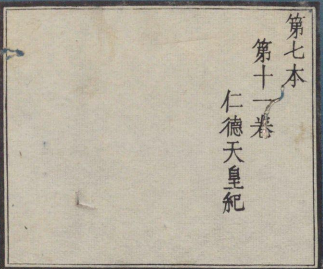 第七本
第十一卷
仁德天皇紀